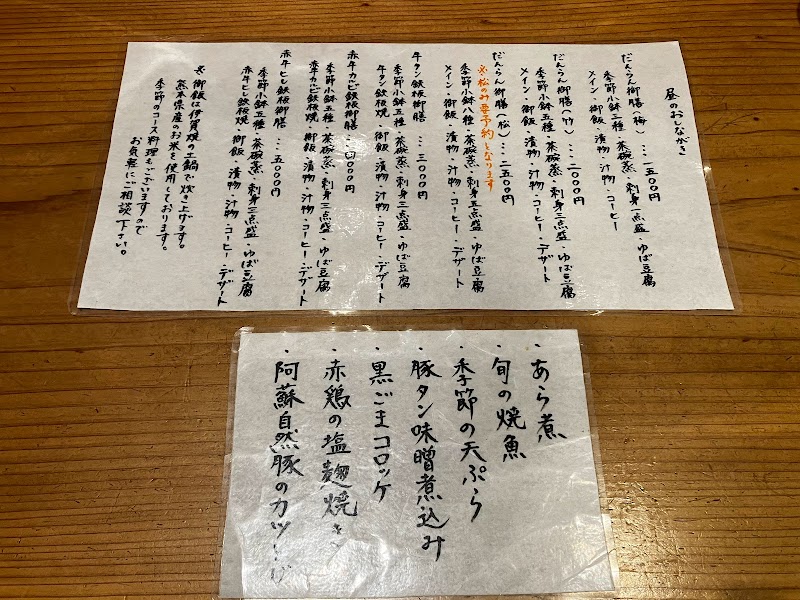 昼のおしながき
だんらん御膳(梅)…一五〇〇円
季節小鉢二種・茶碗蒸・刺身三点盛・ゆば豆腐
メイン・御飯・漬物・汁物・コーヒー
だんらん御膳(竹)…二〇〇〇円
季節小鉢五種・茶碗蒸・刺身三点盛・ゆば豆腐
メイン・御飯・漬物・汁物・コーヒー・デザート
だんらん御膳(松)…二五〇〇円
※松のみ要予約となります
季節小鉢八種・茶碗蒸・刺身五点盛・ゆば豆腐
メイン・御飯・漬物・汁物・コーヒー・デザート
牛タン鉄板御膳…三〇〇〇円
季節小鉢五種・茶碗蒸・刺身三点盛・ゆば豆腐
牛タン鉄板焼・御飯・漬物・汁物・コーヒー・デザート
赤牛カルビ鉄板御膳…四〇〇〇円
季節小鉢五種・茶碗蒸・刺身三点盛・ゆば豆腐
赤牛カルビ鉄板焼・御飯・漬物・汁物・コーヒー・デザート
赤牛ヒレ鉄板御膳…五〇〇〇円
季節小鉢五種・茶碗蒸・刺身三点盛・ゆば豆腐
赤牛ヒレ鉄板焼・御飯・漬物・汁物・コーヒー・デザート
※御飯は伊賀焼の土鍋で炊き上げます。
熊本県産のお米を使用しております。
季節のコース料理もございますので
お気軽にご相談下さい。
・あら煮
・旬の焼魚
・季節の天ぷら
・豚タン味噌煮込み
・黒ごまコロッケ
・赤鶏の塩麹焼き
・阿蘇自然豚のカツ